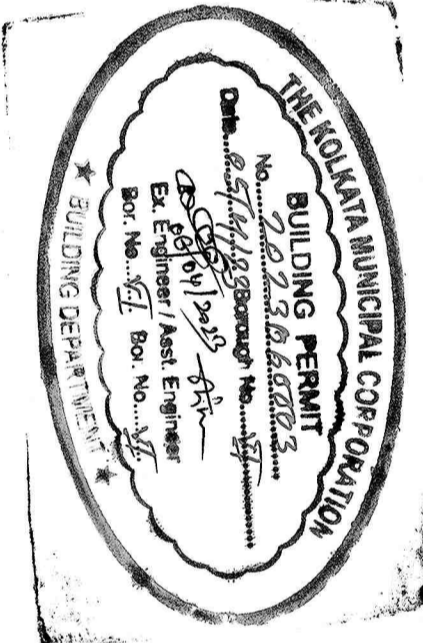 THE KOLKATA MUNICIPAL CORPORATION
BUILDING PERMIT
No. 2023060003
Date 05/4/23 Borough No. VI
06/04/2023
Ex. Engineer / Asst. Engineer
Bor. No. VI Bor. No. VI
★ BUILDING DEPARTMENT ★